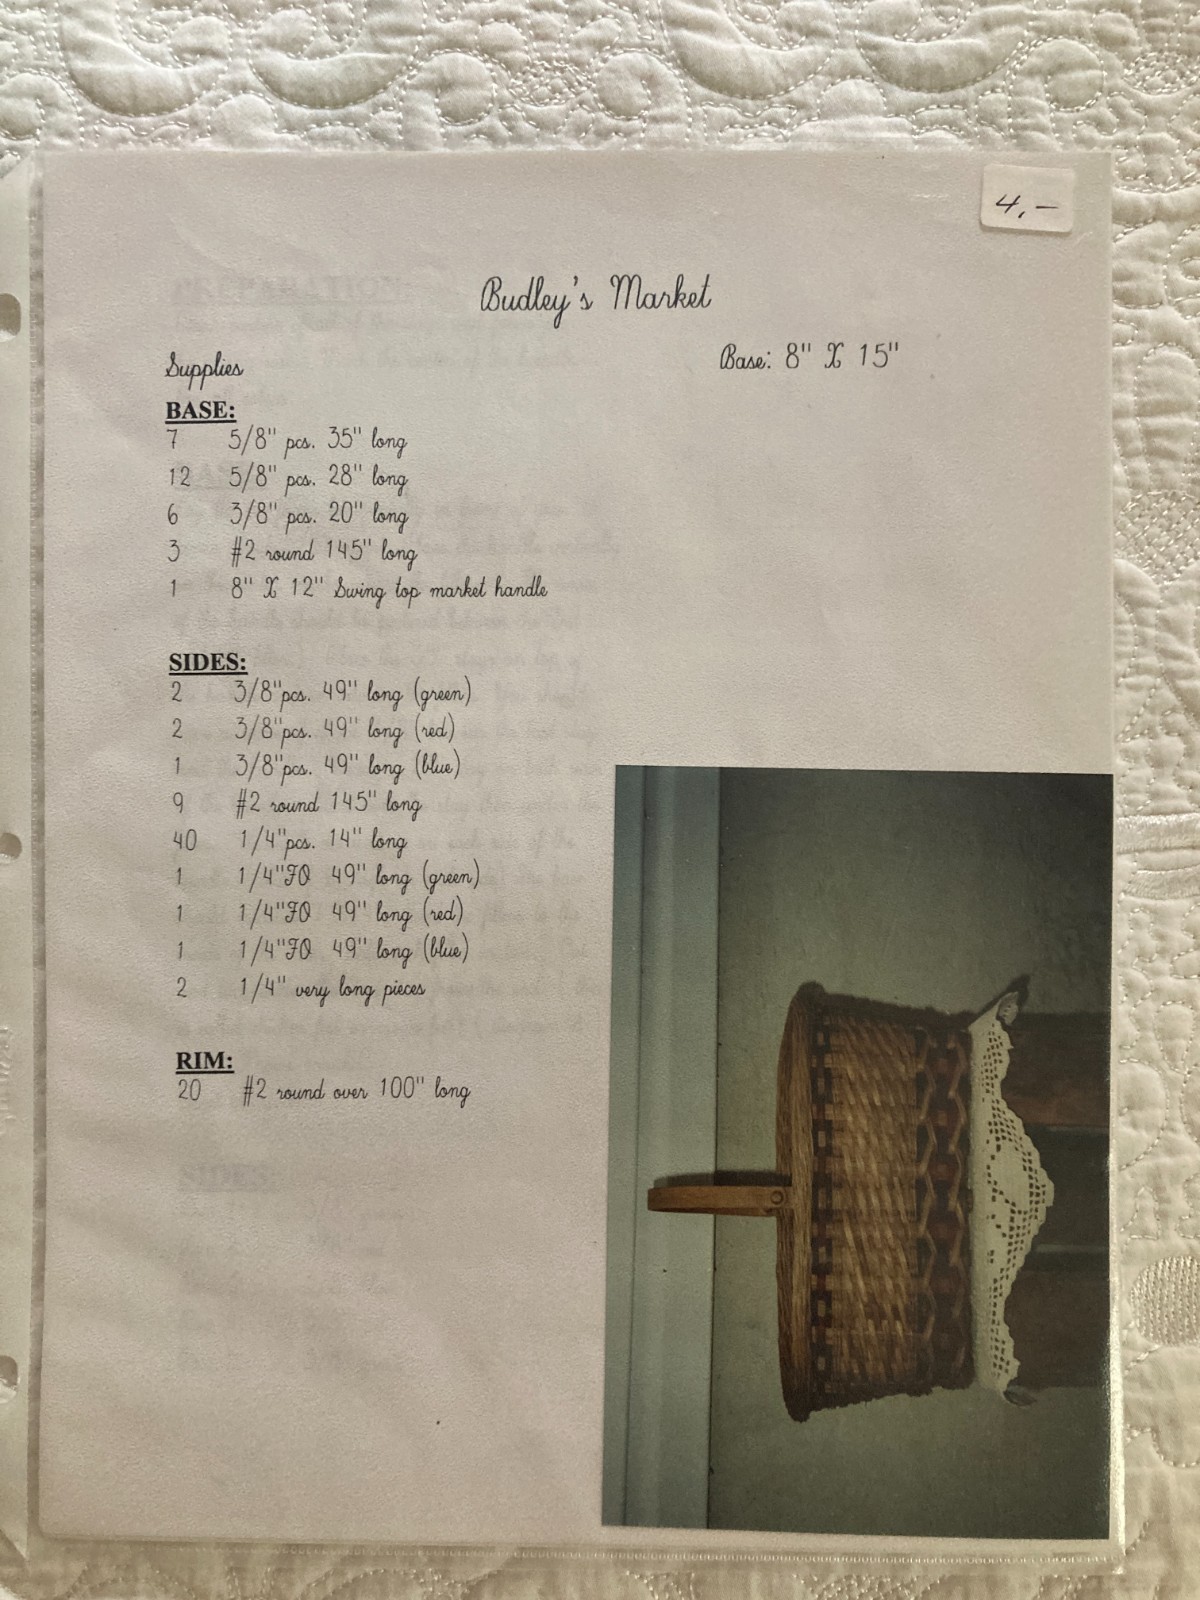 4,-
Budley's Market
Supplies
Base: 8" X 15"
BASE:
7 5/8" pcs. 35" long
12 5/8" pcs. 28" long
6 3/8" pcs. 20" long
3 #2 round 145" long
1 8" X 12" Swing top market handle
SIDES:
2 3/8"pcs. 49" long (green)
2 3/8"pcs. 49" long (red)
1 3/8"pcs. 49" long (blue)
9 #2 round 145" long
40 1/4"pcs. 14" long
1 1/4"FO 49" long (green)
1 1/4"FO 49" long (red)
1 1/4"FO 49" long (blue)
2 1/4" very long pieces
RIM:
20 #2 round over 100" long